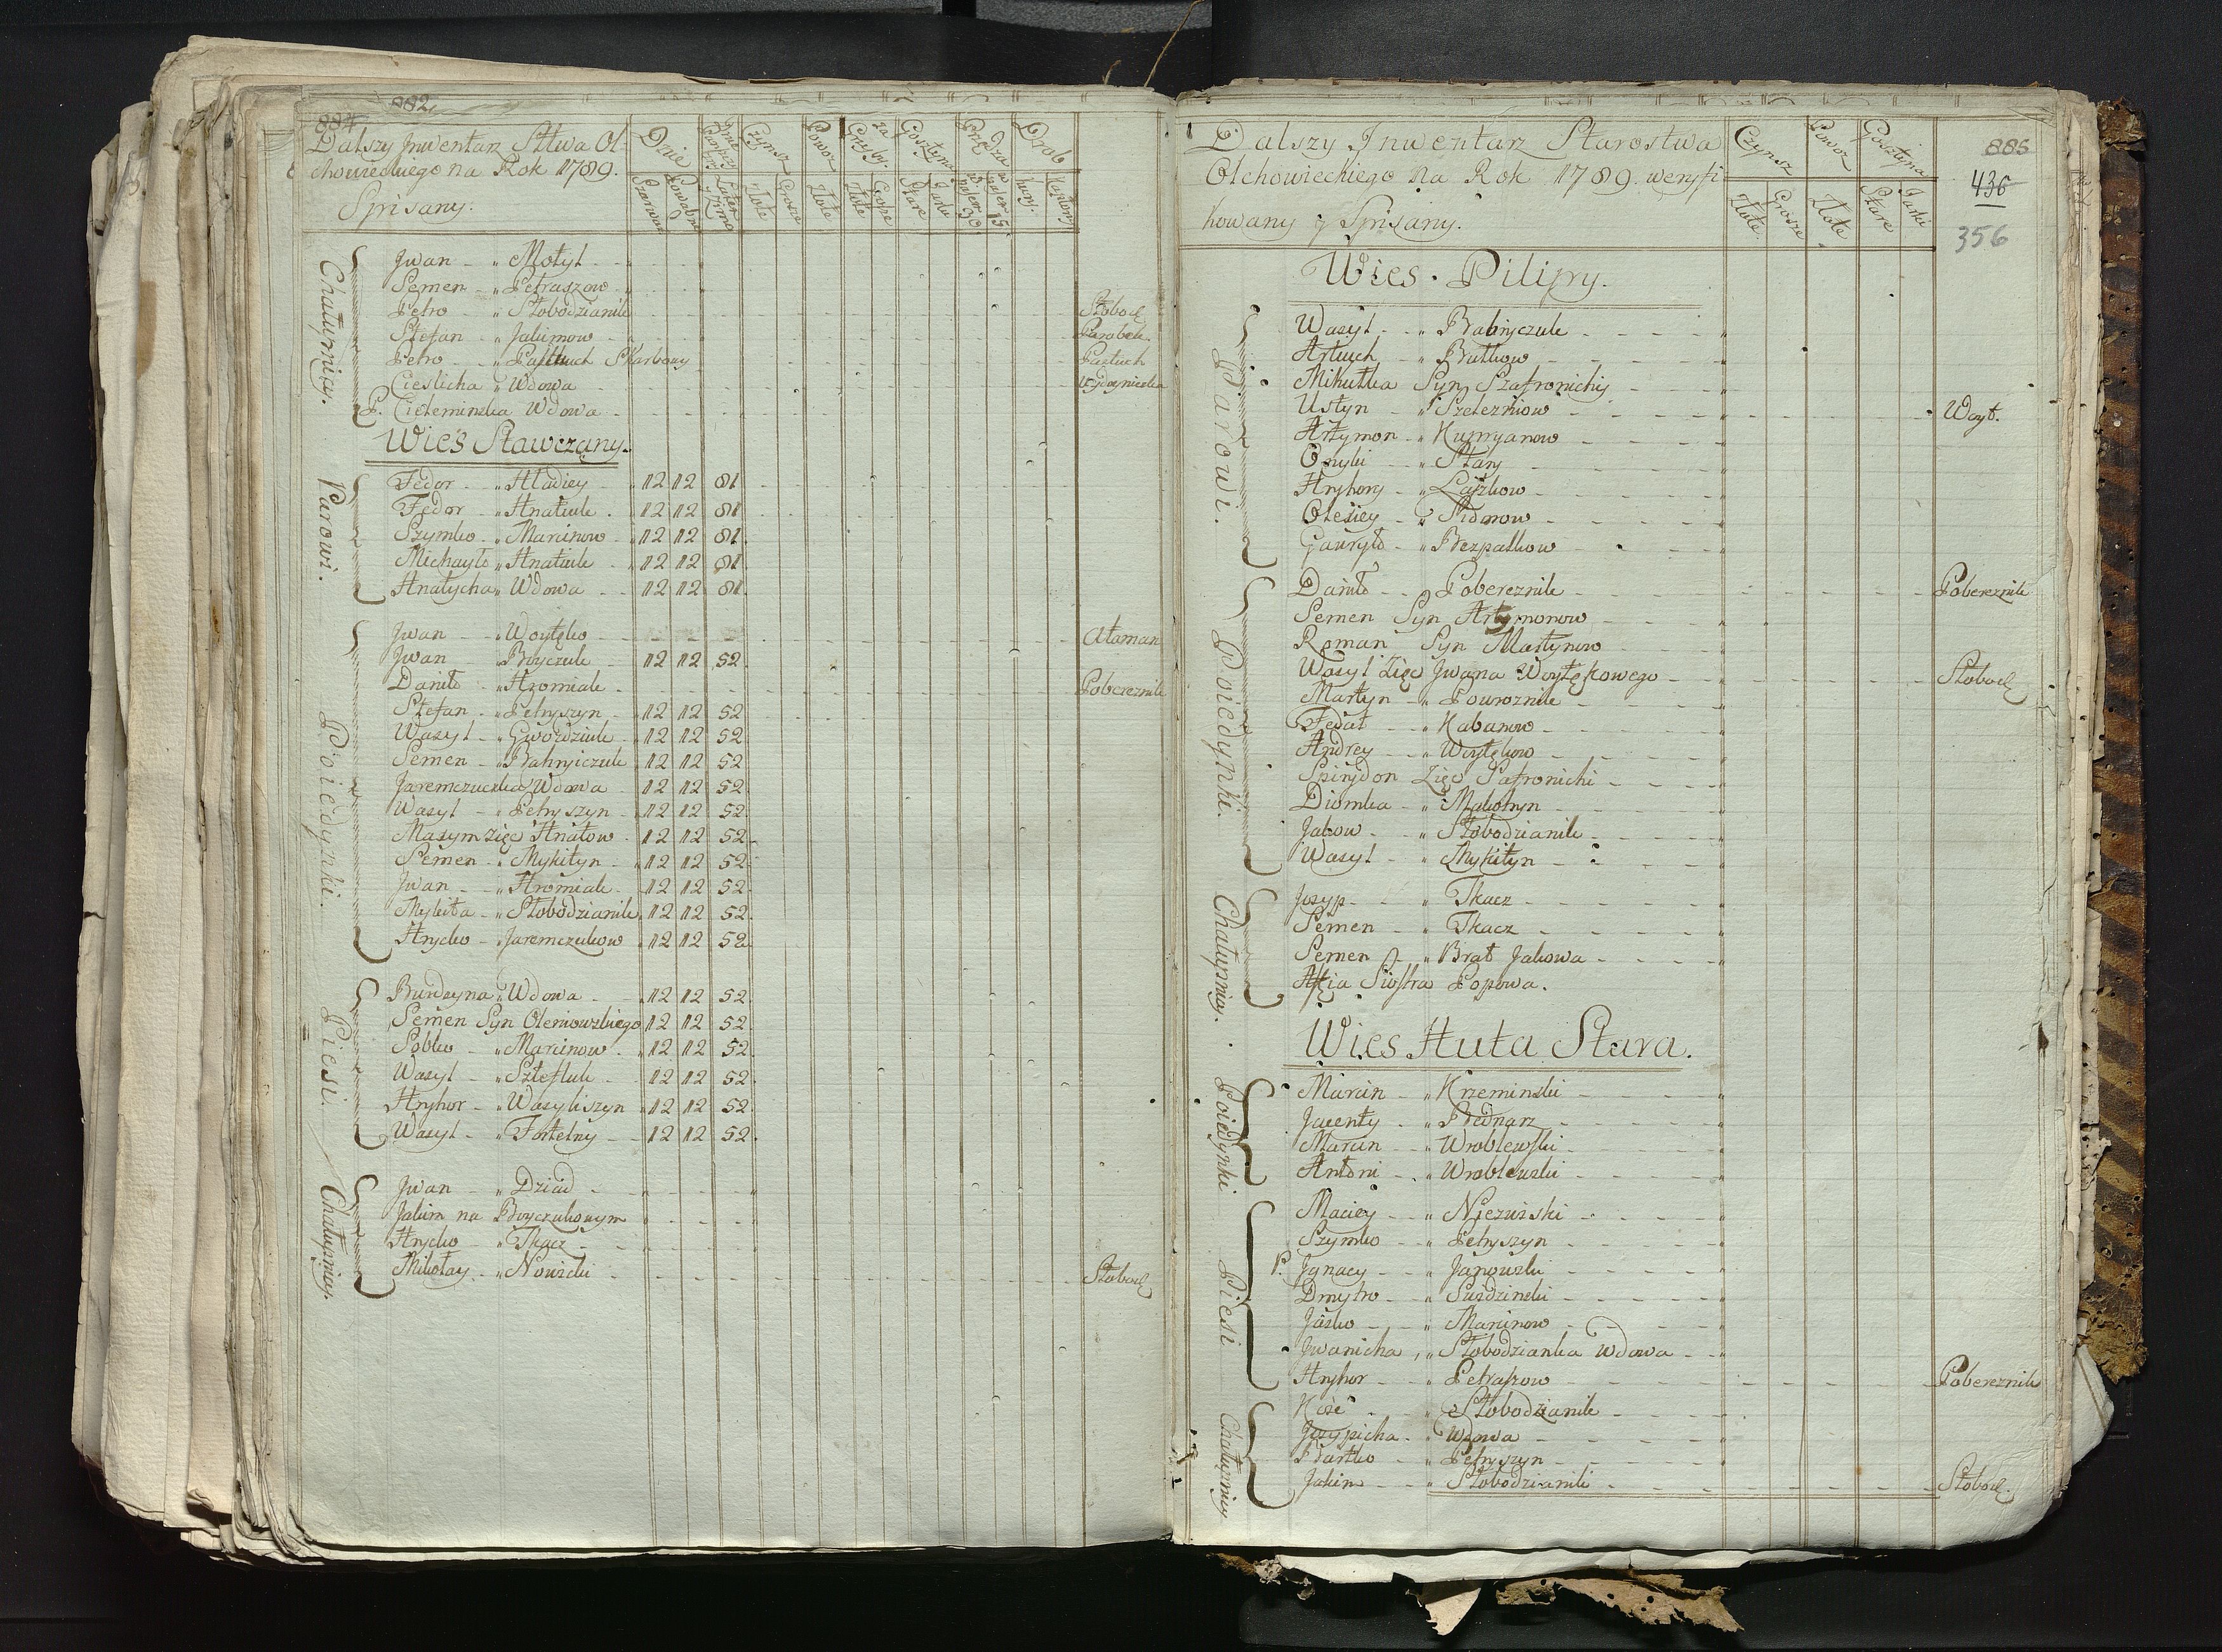 882
884
Dalszy Inwentarz Sttwa Ol-
chowieckiego na Rok 1789.
Spisany.
Dnie
Czynsz
Powoz
Grzyby
Gostyna
Drob
Złote
Grosze
Złote
Złote
Stare
Jarki
Kury
Kapłony
Chałupnicy.
Jwan " Motyl
Semen " Petraszow
Petro " Słobodzianik Słobod
Stefan " Jakimow Parobek
Petro " Pastuch Skarbowy Pastuch
Cieslicha " Wdowa
P. Cieleminska Wdowa
Wieś Sławczany.
Parowi.
Fedor " Hladiey 12 12 81
Fedor " Hnatiuk 12 12 81
Szymko " Marcinow 12 12 81
Michayło " Hnatiuk 12 12 81
Hnatycha " Wdowa 12 12 81
Poiedynki.
Jwan " Woytęko Ataman
Jwan " Boyczuk 12 12 52
Daniło " Hromiak Pobereznik
Stefan " Petryszyn 12 12 52
Wasyl " Gwozdziuk 12 12 52
Semen " Bahryiczuk 12 12 52
Jaremczuczka Wdowa 12 12 52
Wasyl " Petryszyn 12 12 52
Maxym zięc Hnatow 12 12 52
Semen " Mykityn 12 12 52
Jwan " Hromiak 12 12 52
Mykita " Słobodzianik 12 12 52
Hryćko " Jaremczukow 12 12 52
Piesi.
Burdeyna " Wdowa 12 12 52
Semen Syn Oleniowskiego 12 12 52
Sobko " Marcinow 12 12 52
Wasyl " Sztefluk 12 12 52
Hryhor " Wasyliszyn 12 12 52
Wasyl " Fortelny 12 12 52
Chałupnicy.
Jwan " Dziad
Jakim na Boyczukowym
Hryćko " Tkacz
Mikołay " Nowicki Słobod
Dalszy Inwentarz Starostwa
Olchowieckiego na Rok 1789. weryfi
kowany y Spisany.
Czynsz
Powoz
Gostyna
Złote
Grosze
Złote
Stare
Jarki
885
436
356
Wies Pilipy.
Parowi.
Wasyl " Babiyczuk
Hrtuch " Butkow
Mikułka Syn Szafronichy
Ustyn " Szelezniow Woyt.
Artymon " Kupryanow
Onyki " Stary
Hryhory " Laszkow
Olexiey " Sidorow
Gauryło " Bezpalkow
Poiedynki.
Daniło " Pobereznik Pobereznik
Semen Syn Artymonow
Roman Syn Martynow
Wasyl Zięc Jwana Woytękowego Słobod
Martyn " Powroznik
Fedat " Kabanow
Andrey " Woytękow
Spirydon Zięc Safronichi
Diomka " Makohyn
Jakow " Słobodzianik
Wasyl " Mykityn
Chałupnicy.
Josyp " Tkacz
Semen " Tkacz
Semen " Brat Jakowa
Siostra Popowa.
Wies Huta Stara.
Poiedynki
Marcin " Krzeminski
Jacenty " Bednarz
Marcin " Wroblewski
Antoni " Wroblewski
Piesi
Maciey " Niezurski
Szymko " Petryszyn
P. Jgnacy " Janowski
Dmytro " Suidzinski
Jaśko " Marcinow
Jwanicha " Słobodzianka Wdowa
Hryhor " Petraszow Pobereznik
Chałupnicy
" Słobodzianik
Josypicha " Wdowa
Bartko " Petryszyn
Jakim " Słobodzianik Słobod.